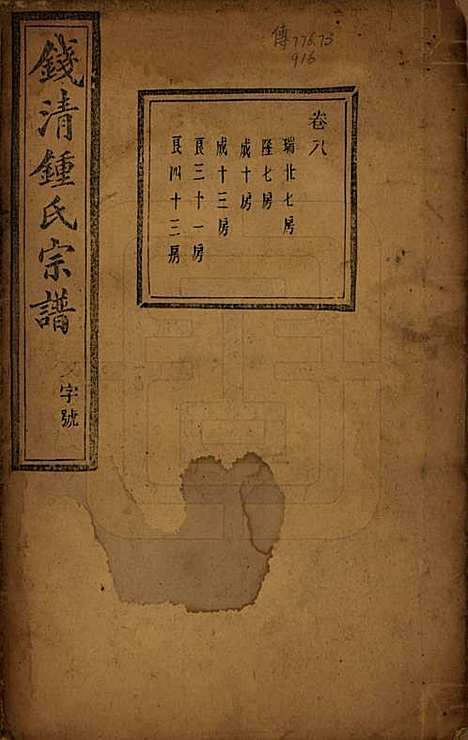 傳776.73
916
卷八
瑞北七房
隆七房
成十房
成十三房
良三十一房
良四十三房
錢清鍾氏宗譜
字號